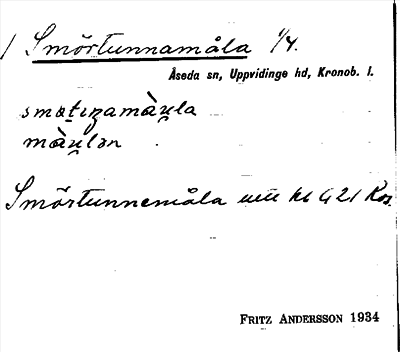 / Smörtunnamåla 1/4.
Åseda sn, Uppvidinge hd, Kronob. l.
smøtıɳamàu̯la
màu̯lən
Smörtunnemåla 421
FRITZ ANDERSSON 1934